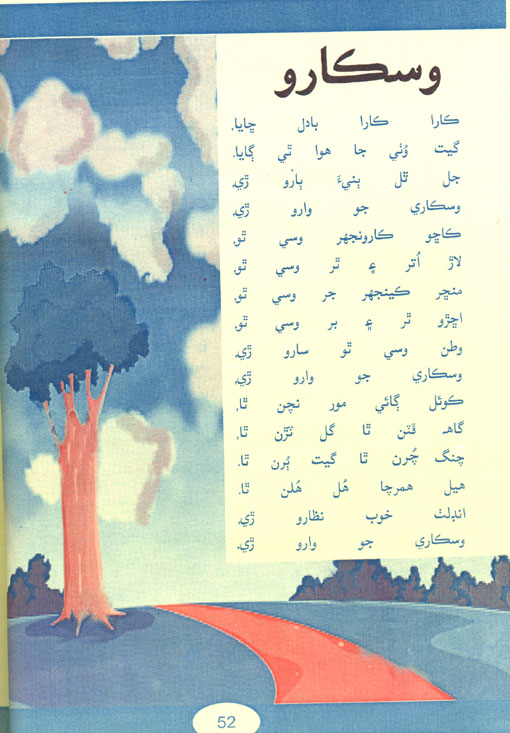 وسڪارو
ڪارا ڪارا بادل ڇايا،
گيت وُٺي جا هوا ٿي ڳايا.
جل ٿل ٻنيءَ ٻارو ڙي،
وسڪاري جو وارو ڙي،
ڪاڇو ڪارونجهر وسي ٿو،
لاڙ اُتر ۽ ٿر وسي ٿو،
منڇر ڪينجهر جر وسي ٿو،
اڇڙو ٿر ۽ بر وسي ٿو،
وطن وسي ٿو سارو ڙي،
وسڪاري جو وارو ڙي،
ڪوئل ڳائي مور نچن ٿا،
گاهه ڦٽن ٿا گل ٽڙن ٿا،
چنگ چُرن ٿا گيت ٻُرن ٿا.
هيل همرچا هُل هُلن ٿا.
انڊلٺ خوب نظارو ڙي،
وسڪاري جو وارو ڙي.
52